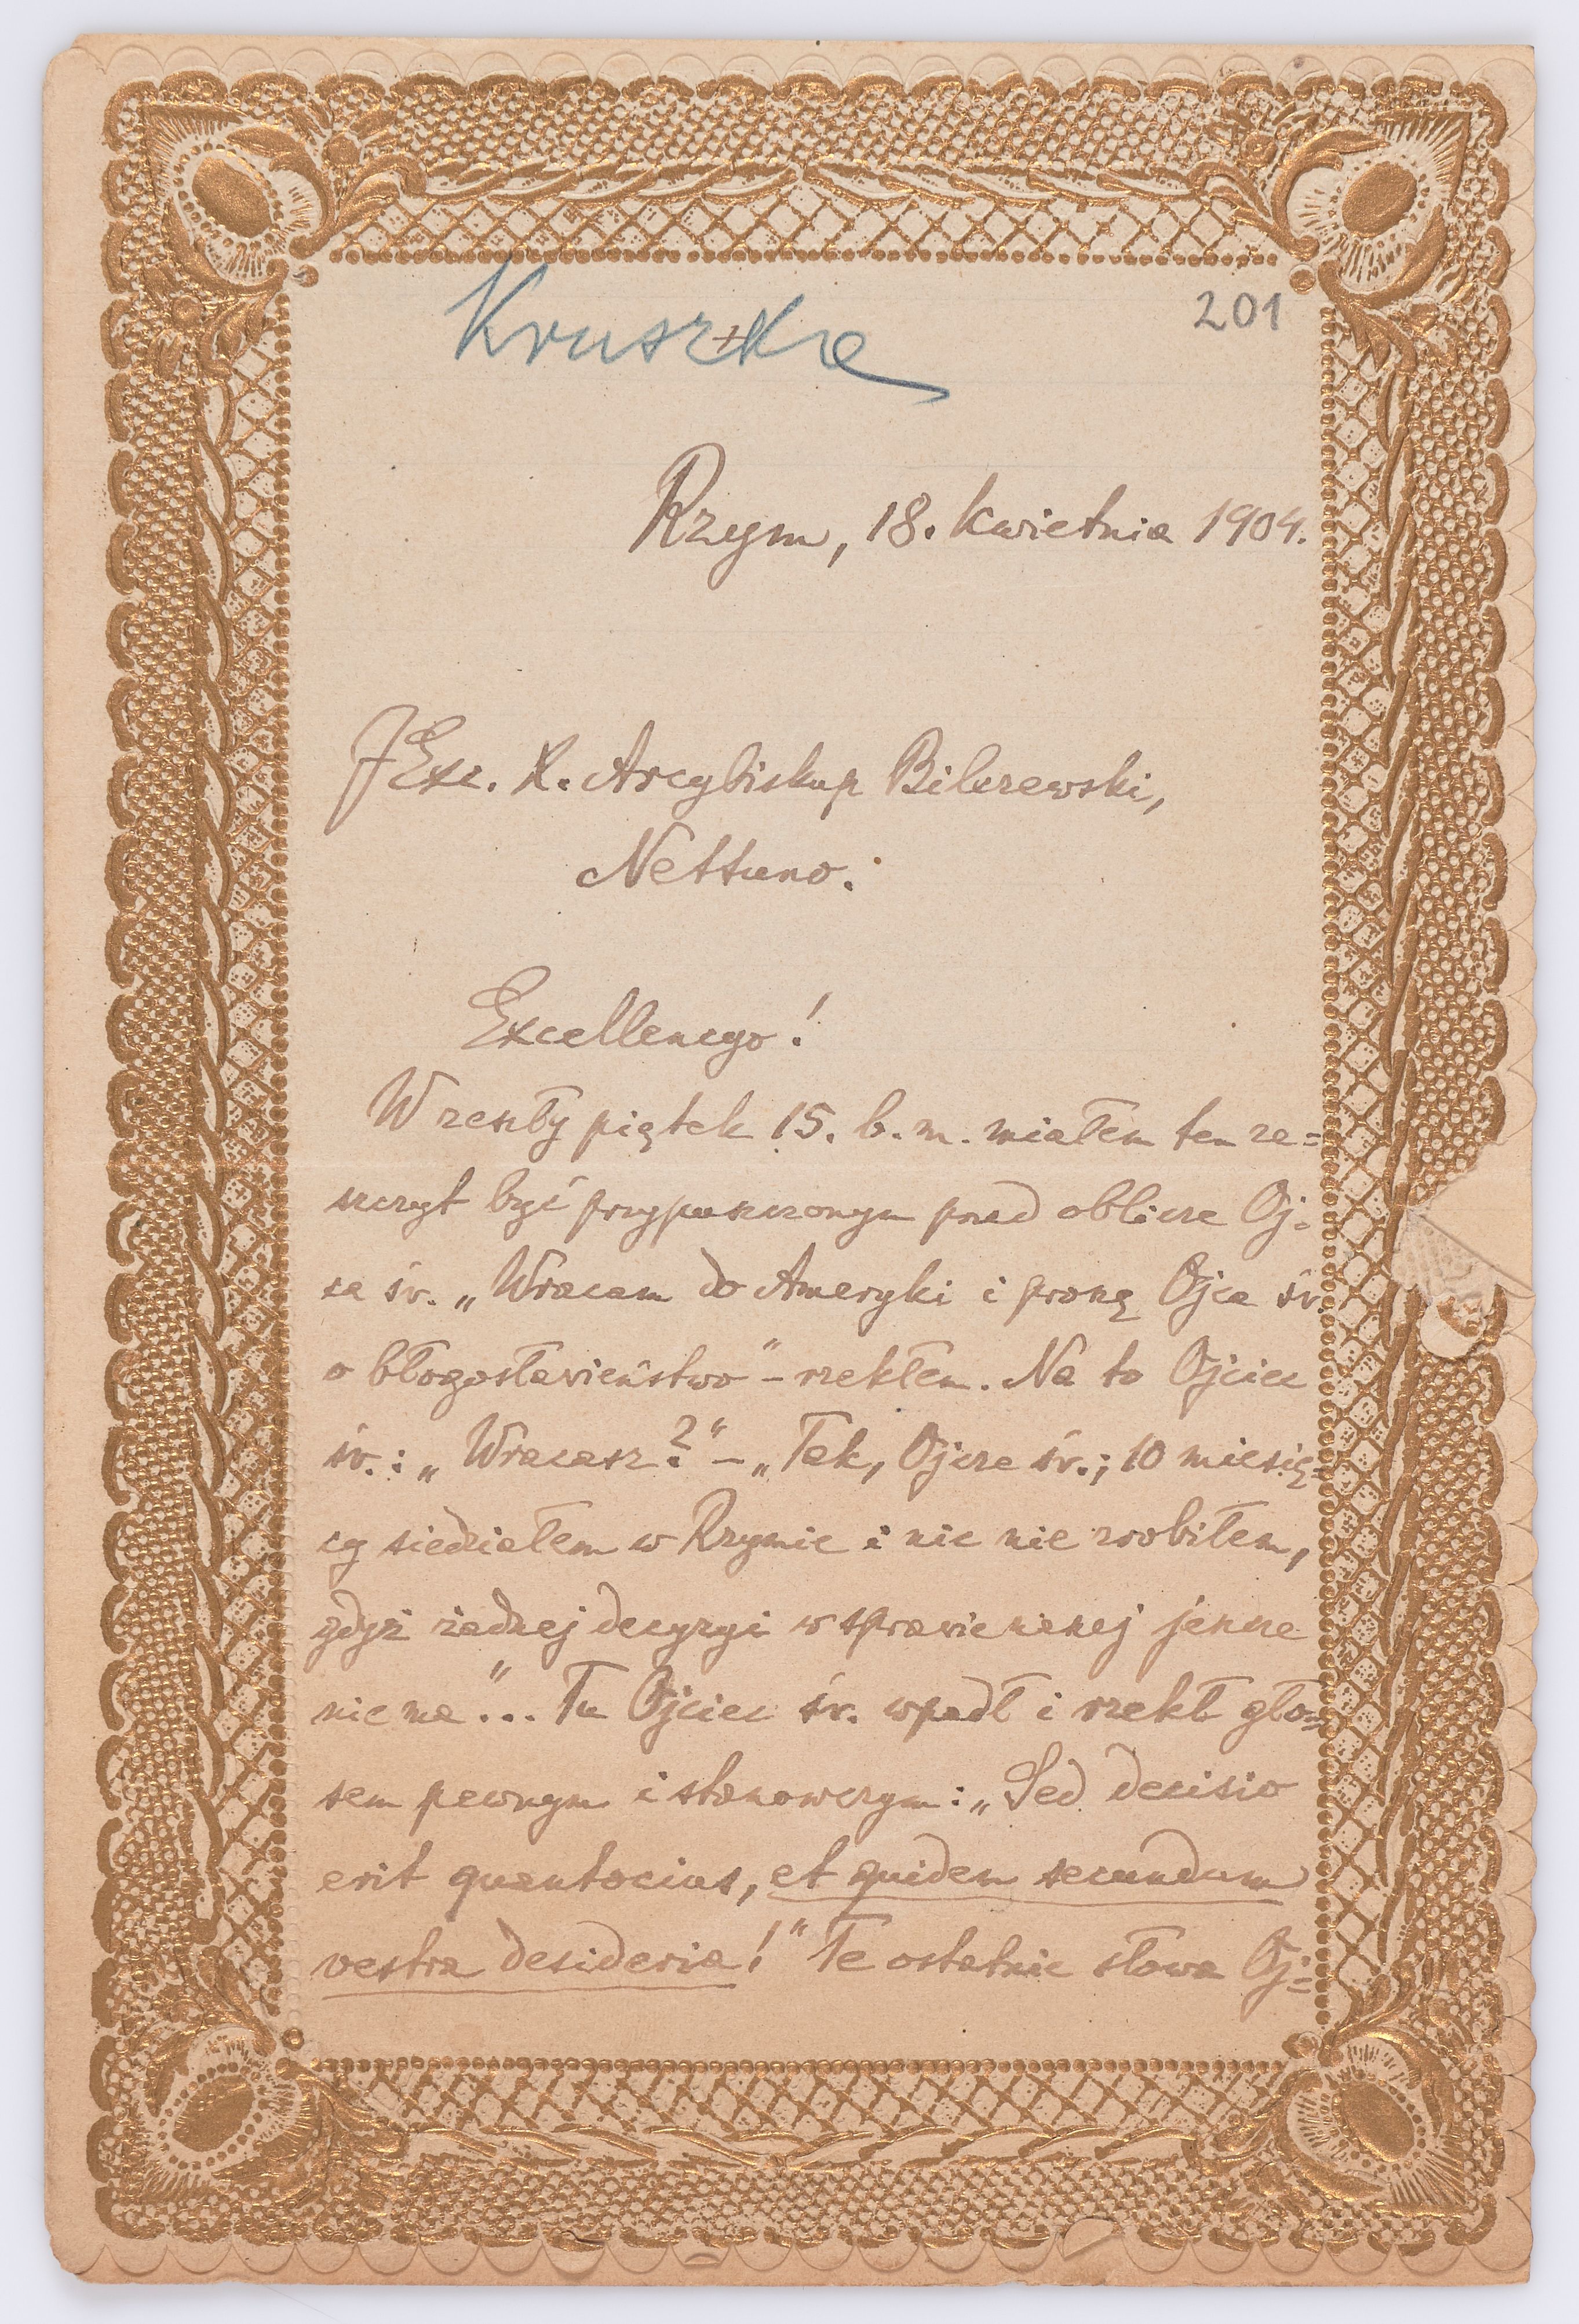 Kruszka
201
Rzym, 18. kwietnia 1904.
JExc. X. Arcybiskup Bilczewski,
Nettuno.
Excellencyo!
W zeszły piątek 15. b. m. miałem ten za=
szczyt być przypuszczonym przed oblicze Oj=
ca św. „Wracam do Ameryki i proszę Ojca św.
o błogosławieństwo" – rzekłem. Na to Ojciec
św.: „Wracasz?" – „Tak, Ojcze św.; 10 miesię=
cy siedziałem w Rzymie i nic nie zrobiłem,
gdyż żadnej decyzyi w sprawie naszej jeszcze
nie ma"... Tu Ojciec św. wpadł i rzekł gło=
sem pewnym i stanowczym: „Sed decisio
erit quantocius, et quidem secundum
vestra desideria!" Te ostatnie słowa Oj=